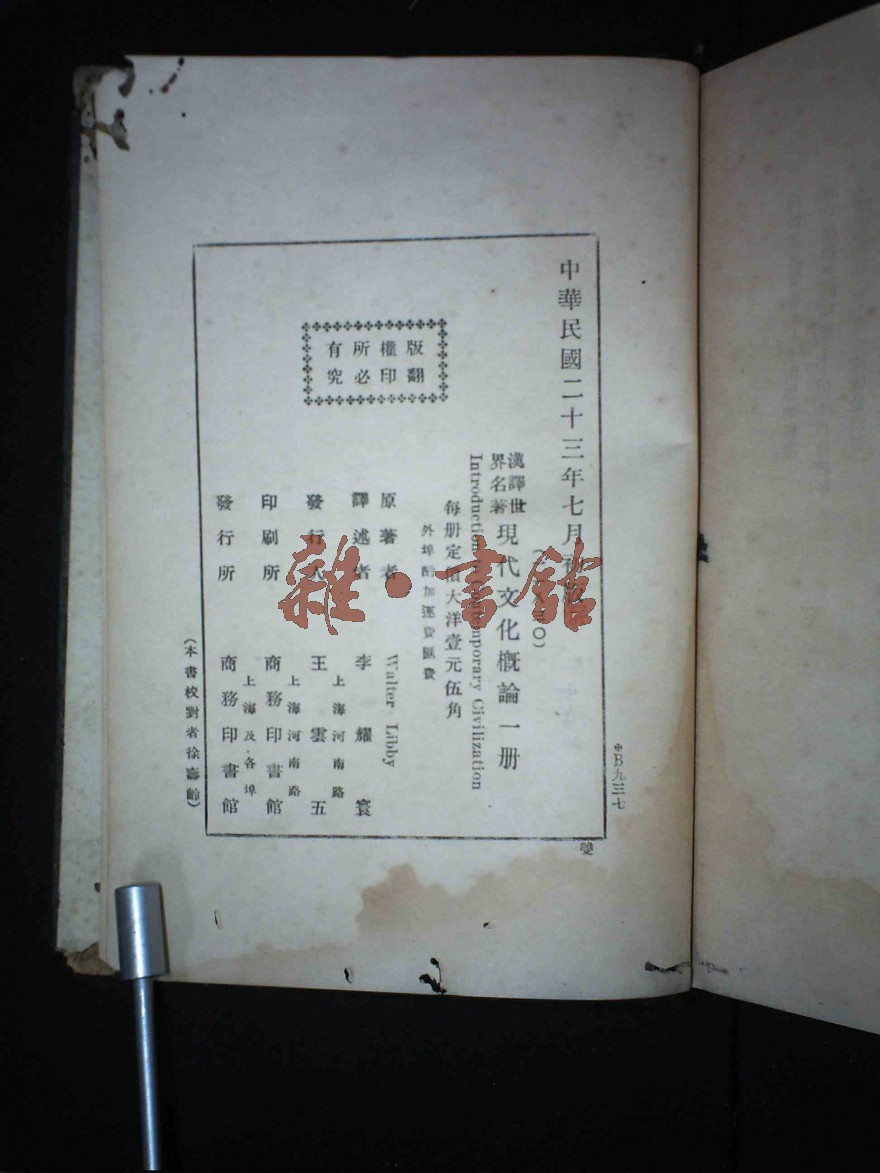 中華民國二十三年七月初版
漢譯世界名著
現代文化概論一册
Introduction Contemporary Civilization
每册定價大洋壹元伍角
外埠酌加運費匯費
版權所有
翻印必究
原著者 Walter Libby
譯述者 李耀寰
發行人 王雲五
上海河南路
印刷所 商務印書館
上海河南路
發行所 商務印書館
上海及各埠
(本書校對者徐壽齡)
B九三七
雙
雜·書館